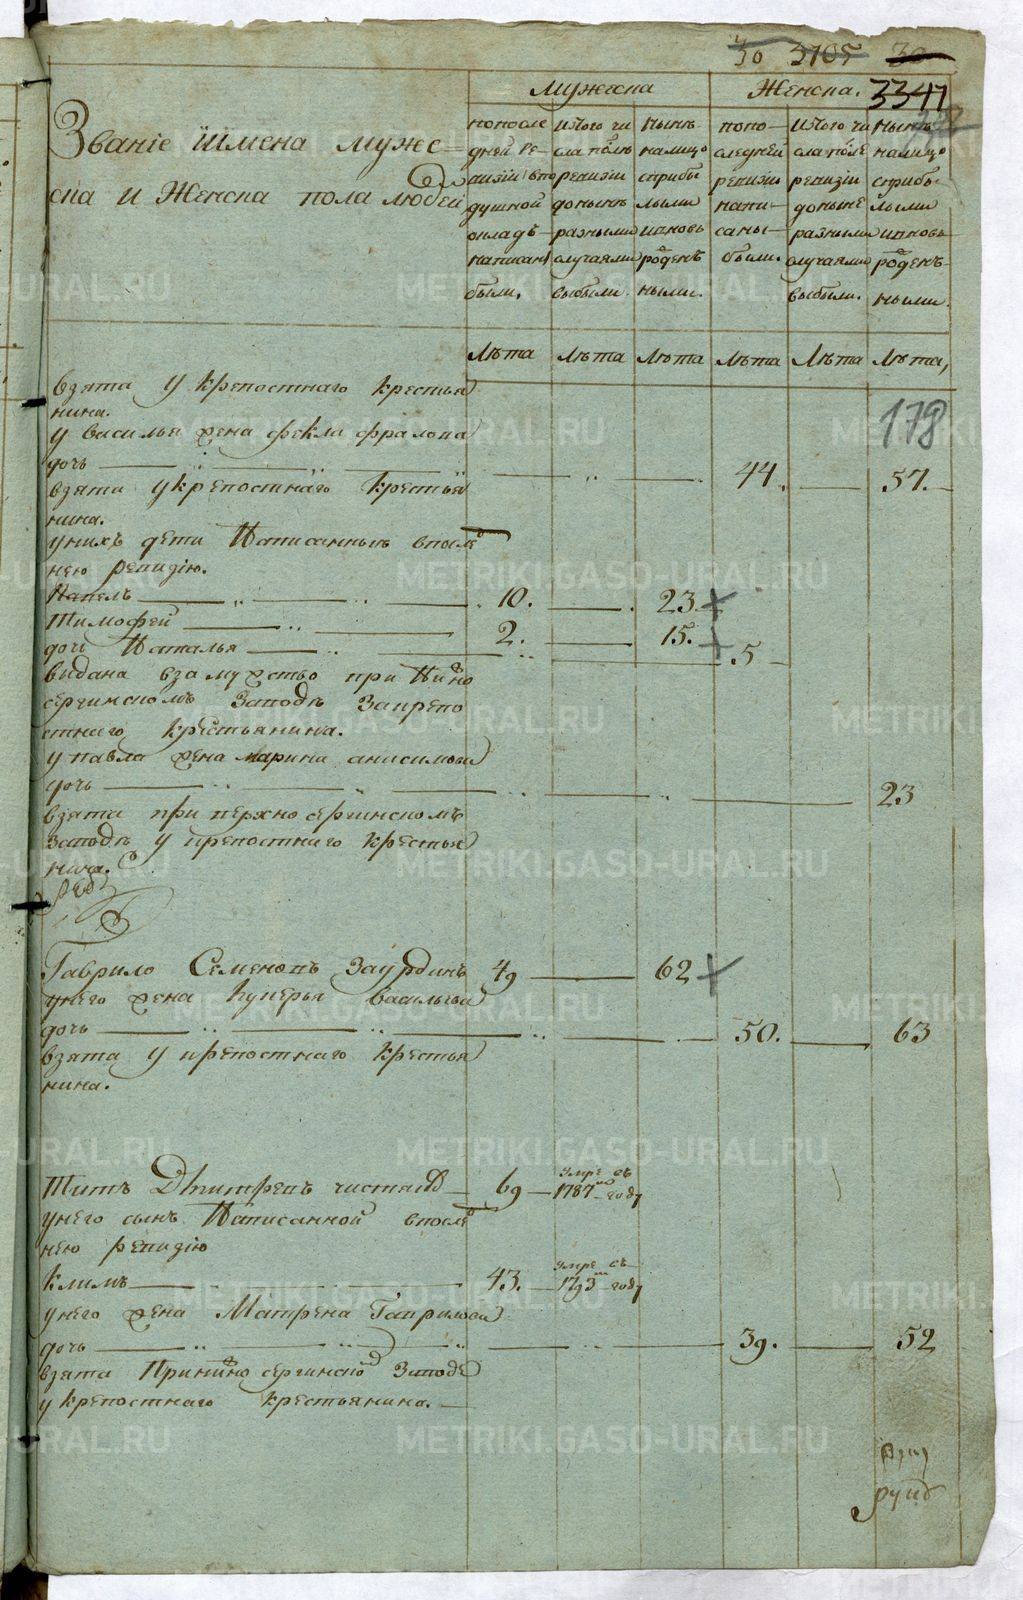 30 3105 30
3347
мужеска Женска.
Званіе иимена мужес-
ска и Женска пола людей
попосле
дней ре
визіи впо
душной
окладъ
написаны
были.
исчого чи
сла послѣ
ревизіи
донынѣ
разными
случаями
выбыли.
Нынѣ
налицо
сприбы
лыми
ивновь
рожденъ
ными.
попо-
следней
ревизіи
напи-
саны-
были.
исчого чи
сла послѣ
ревизіи
донынѣ
разными
случаями
выбыли.
Нынѣ
налицо
сприбы
лыми
ивновь
рожденъ-
ными
лѣта лѣта лѣта лѣта лѣта лѣта,
взята у крепостнаго крестья
нина.
178
у василья жена фекла фралова
дочь 44. 57.
взята укрепостнаго крестья
нина.
унихъ дети Написанныя впослѣд
нею ревизію.
Павелъ 10. 23.
Тимофей 2. 15.
дочь Наталья 5
выдана взамужство при Нижно
сергинскомъ заводѣ закрепо
стнаго крестьянина.
у павла жена марина анисимова
дочь 23
взята при верхно сергинскомъ
заводѣ у крепостнаго крестья
нина.
Гаврило Семеновъ Заурдинъ 49 62
унего жена Лукерья васильева
дочь 50. 63
взята у крепостнаго крестья
нина.
Титъ Дмитревъ чистяков 69 умре въ
1787мъ году
унего сынъ Написанной впослѣд
нею ревизію
климъ 43. умре въ
1793м году
унего жена Матрена Гаврилова
дочь 39. 52
взята Принижно сергинской Заводѣ
у крепостнаго крестьянина.
METRIKI.GASO-URAL.RU